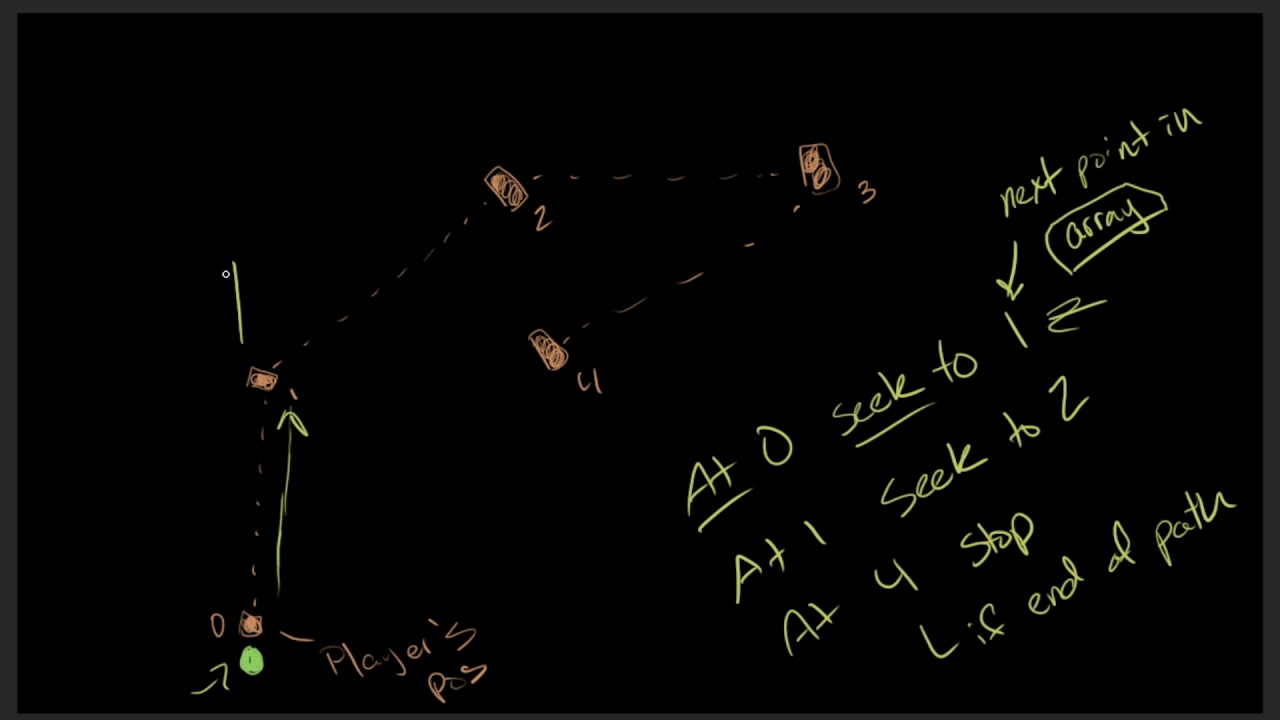 2
3
1
4
0
Player's
pos
next point in
array
At 0 seek to 1
At 1 Seek to 2
At 4 Stop
if end of path